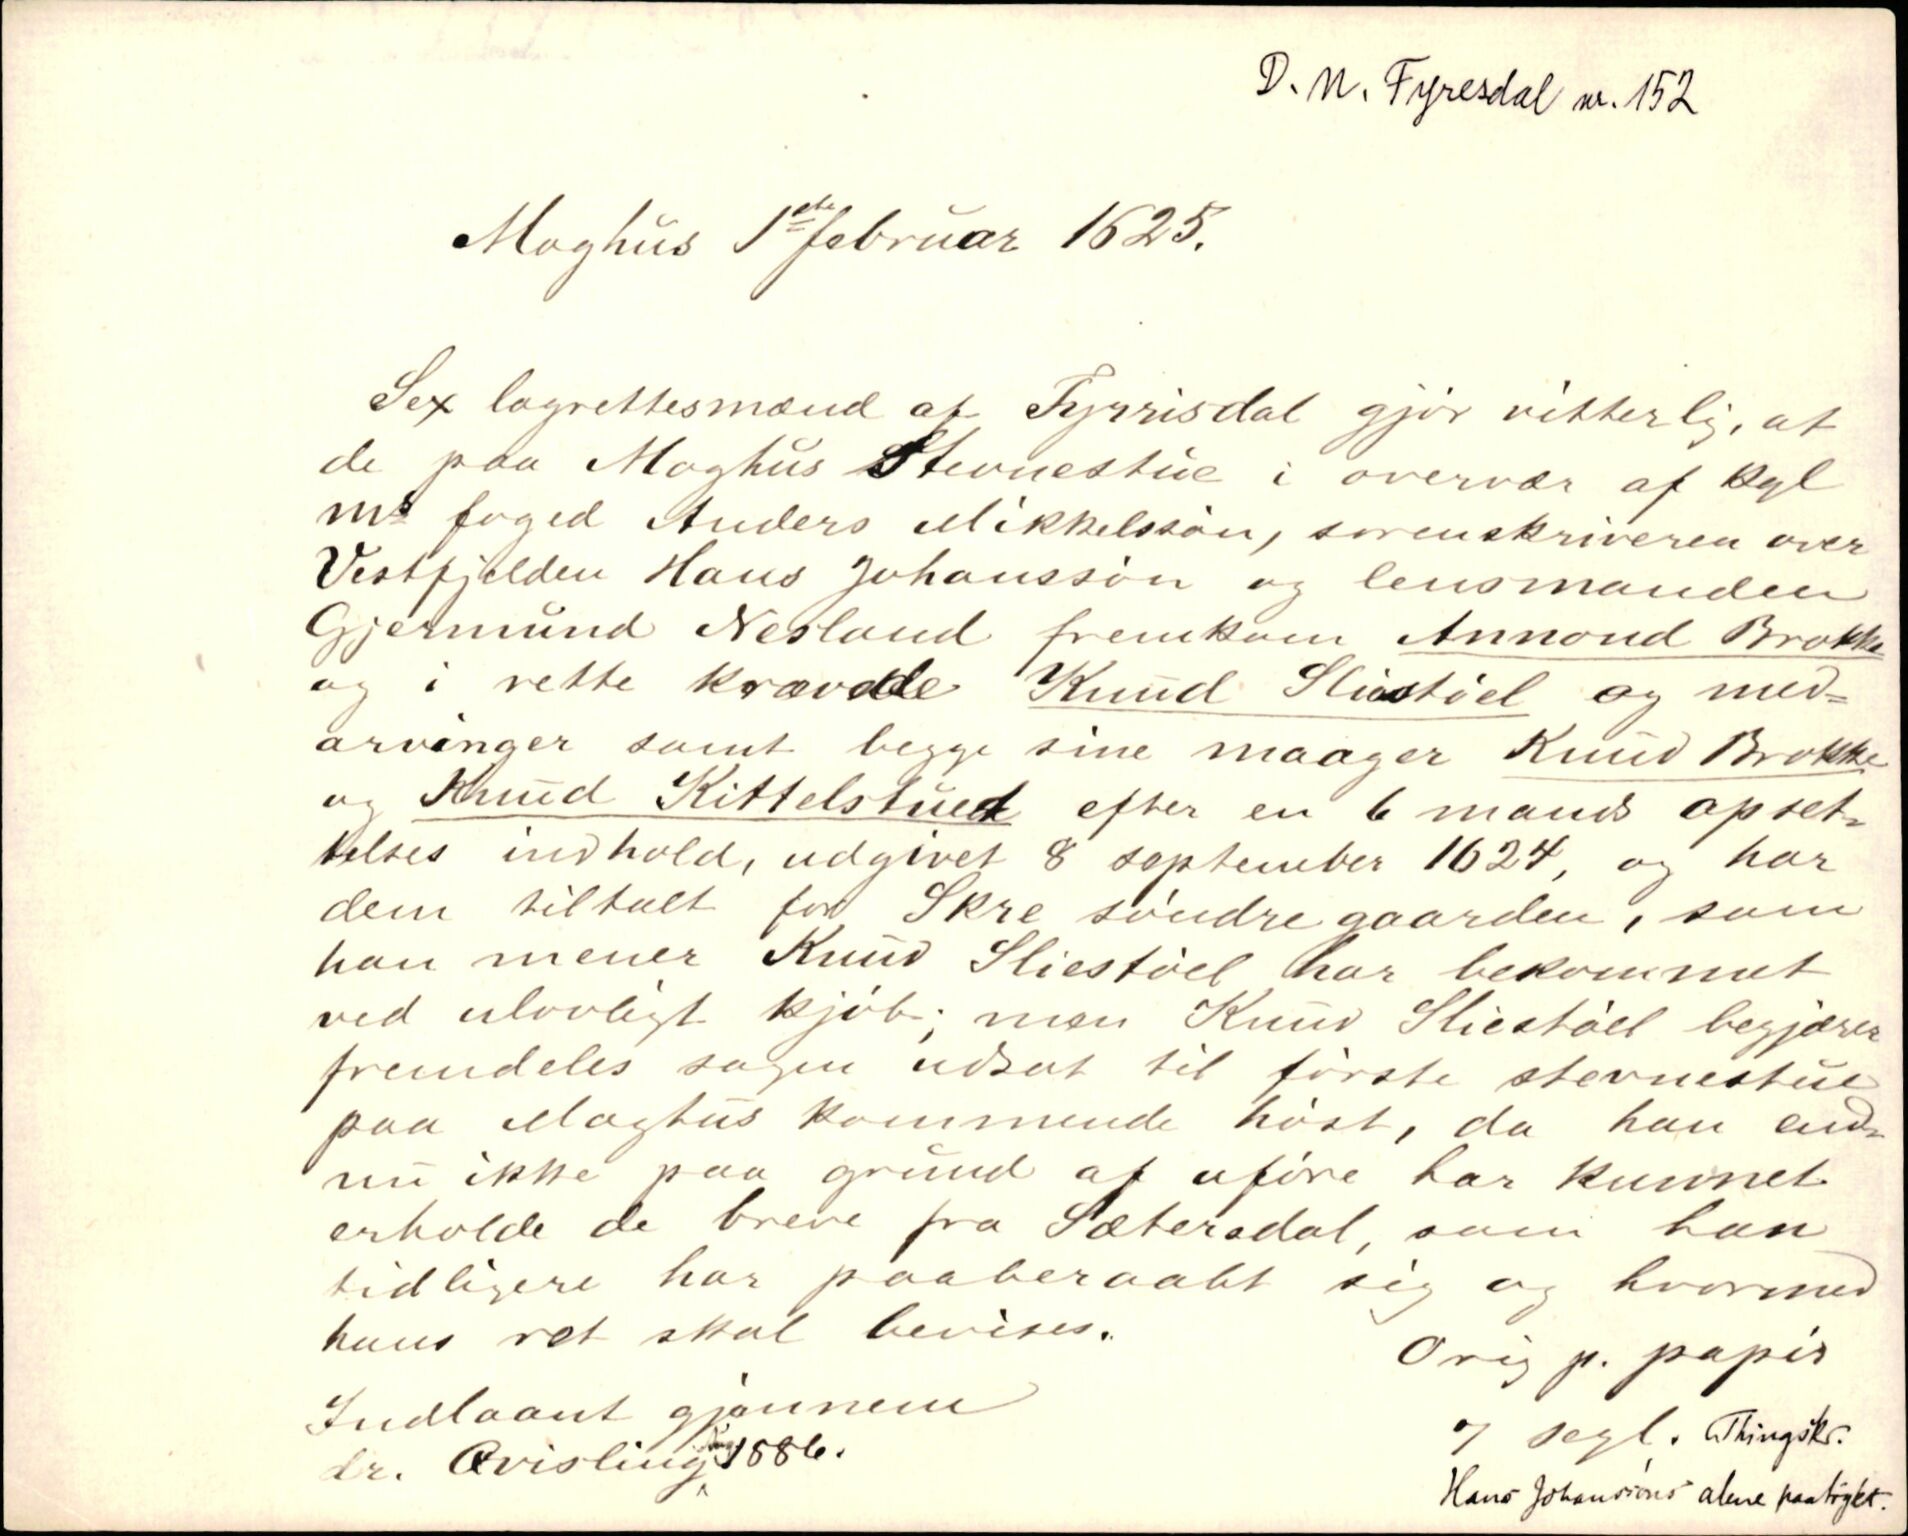 D. N. Fyresdal nr. 152
Moghus 1ste februar 1625.
Sex lagrettesmænd af Fyrrisdal gjör vitterlig, at
de paa Moghus Stevnestue i overvær af kgl
ms foged Anders Mikkelssön, sorenskriveren over
Vestfjelden Hans Johanssön og lensmanden
Gjermund Nesland fremkom Annond Brokke
og i rette krævde Knud Sliestöel og med=
arvinger samt begge sine maager Knud Brokke
og Knud Kittelstued efter en 6 mands opset-
telses indhold, udgivet 8 september 1624, og har
dem tiltalt for Skre söndre gaarden, som
han mener Knud Sliestöel har bekommet
ved ulovligt kjöb; men Knud Sliestöel begjærer
fremdeles sagen udsat til förste stevnestue
paa Moghus kommende höst, da han end-
nu ikke paa grund af uföre har kunnet
erholde de breve fra Sætersdal, som han
tidligere har paaberaabt sig og hvormed
hans ret skal bevises.
Orig p. papir
Indlaant gjönnem
dr. Qvisling 1886.
7 segl. Thingskr.
Hans Johanssöns alene paatrykt.